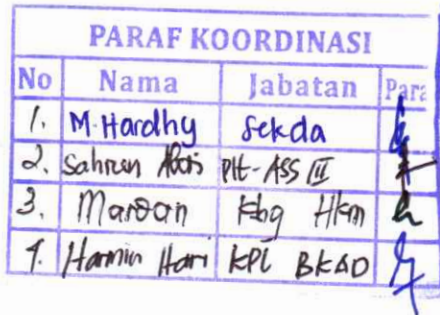 PARAF KOORDINASI
No Nama Jabatan Para
1. M. Hardhy Sekda
2. Sahrun Plt-ASS III
3. Marwan Kbg Hkm
4. Harmin Hari KPL BKAD